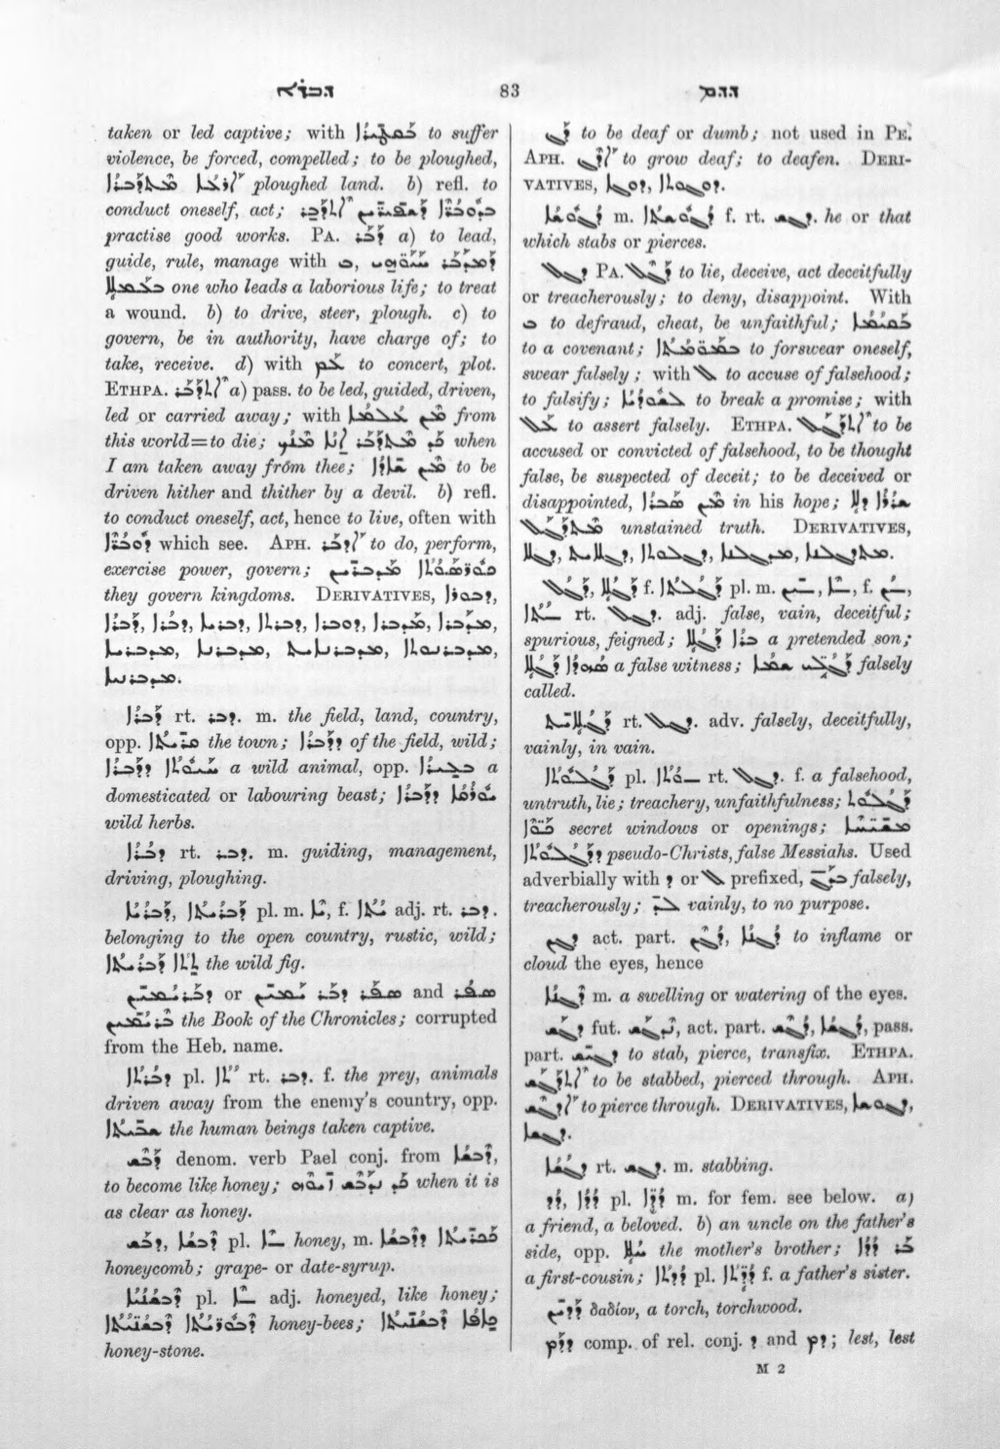 ܕܒܘܪܐ 83 ܕܕܡ
taken or led captive; with ܒܩܛܝܪܐ to suffer
violence, be forced, compelled; to be ploughed,
ܐܪܥܐ ܡܬܕܒܪܐ ploughed land. b) refl. to
conduct oneself, act;
practise good works. PA. ܕܒܪ a) to lead,
guide, rule, manage with ܒ,
ܒܥܡܠܐ one who leads a laborious life; to treat
a wound. b) to drive, steer, plough. c) to
govern, be in authority, have charge of; to
take, receive. d) with ܥܡ to concert, plot.
ETHPA. ܐܬܕܒܪ a) pass. to be led, guided, driven,
led or carried away; with ܡܢ ܥܠܡܐ from
this world=to die; ܟܕ ܡܬܕܒܪ ܐܢܐ ܡܢܟ when
I am taken away from thee; ܡܢ ܫܐܕܐ to be
driven hither and thither by a devil. b) refl.
to conduct oneself, act, hence to live, often with
ܕܘܒܪܐ which see. APH. ܐܕܒܪ to do, perform,
exercise power, govern; ܡܕܒܪܝܢ
they govern kingdoms. DERIVATIVES, ܕܒܘܪܐ,
ܕܒܪܐ, ܕܒܪܐ, ܕܒܪܝܐ, ܕܒܪܬܐ, ܕܘܒܪܐ, ܡܕܒܪܐ,
ܡܕܒܪܢܘܬܐ, ܡܕܒܪܢܐܝܬ, ܡܕܒܪܢܐ,
ܕܒܪܐ rt. ܕܒܪ. m. the field, land, country,
opp. ܡܕܝܢܬܐ the town; ܕܕܒܪܐ of the field, wild;
ܚܝܘܬܐ ܕܕܒܪܐ a wild animal, opp. ܒܥܝܪܐ a
domesticated or labouring beast; ܝܘܪܩܐ ܕܕܒܪܐ
wild herbs.
ܕܒܪܐ rt. ܕܒܪ. m. guiding, management,
driving, ploughing.
ܕܒܪܝܐ, ܕܒܪܝܬܐ pl. m. f. adj. rt. ܕܒܪ.
belonging to the open country, rustic, wild;
ܬܬܐ ܕܒܪܝܬܐ the wild fig.
ܕܒܪܝܡܝܢ or ܕܒܪ ܝܡܝܢ ܣܦܪ and ܣܦܪ
ܒܪܝܡܝܢ the Book of the Chronicles; corrupted
from the Heb. name.
ܕܒܪܬܐ pl. rt. ܕܒܪ. f. the prey, animals
driven away from the enemy's country, opp.
ܫܒܝܬܐ the human beings taken captive.
ܕܒܫ denom. verb Pael conj. from ܕܒܫܐ,
to become like honey; when it is
as clear as honey.
ܕܒܫ, ܕܒܫܐ pl. honey, m. ܟܟܪܝܬܐ ܕܕܒܫܐ
honeycomb; grape- or date-syrup.
ܕܒܫܢܝܐ pl. adj. honeyed, like honey;
ܕܒܘܪܝܬܐ ܕܒܫܢܝܬܐ honey-bees; ܟܐܦܐ ܕܒܫܢܝܬܐ
honey-stone.
ܕܓ to be deaf or dumb; not used in PE.
APH. to grow deaf; to deafen. DERI-
VATIVES,
m. f. rt. ܕܓܫ. he or that
which stabs or pierces.
ܕܓܠ PA. ܕܓܠ to lie, deceive, act deceitfully
or treacherously; to deny, disappoint. With
ܒ to defraud, cheat, be unfaithful; ܒܩܝܡܐ
to a covenant; ܒܡܘܡܬܐ to forswear oneself,
swear falsely; with ܠ to accuse of falsehood;
to falsify; to break a promise; with
ܥܠ to assert falsely. ETHPA. ܐܬܕܓܠ to be
accused or convicted of falsehood, to be thought
false, be suspected of deceit; to be deceived or
disappointed, ܡܢ ܣܒܪܐ in his hope; ܫܪܪܐ ܕܠܐ
ܡܬܕܓܠ unstained truth. DERIVATIVES,
ܕܓܠܐ, ܕܓܠܐܝܬ, ܕܓܠܘܬܐ, ܡܕܓܠܢܐ,
ܕܓܠ, ܕܓܠܐ f. ܕܓܠܬܐ pl. m. f.
rt. ܕܓܠ. adj. false, vain, deceitful;
spurious, feigned; ܒܪܐ ܕܓܠܐ a pretended son;
ܣܗܕܐ ܕܓܠܐ a false witness; falsely
called.
ܕܓܠܐܝܬ rt. ܕܓܠ. adv. falsely, deceitfully,
vainly, in vain.
ܕܓܠܘܬܐ pl. rt. ܕܓܠ. f. a falsehood,
untruth, lie; treachery, unfaithfulness;
secret windows or openings; ܡܫܝܚܐ
ܕܕܓܠܘܬܐ pseudo-Christs, false Messiahs. Used
adverbially with ܕ or ܠ prefixed, falsely,
treacherously; vainly, to no purpose.
ܕܓܢ act. part. to inflame or
cloud the eyes, hence
ܕܓܢܐ m. a swelling or watering of the eyes.
ܕܓܫ fut. ܢܕܓܫ, act. part. ܕܓܫ, ܕܓܫܐ, pass.
part. ܕܓܝܫ to stab, pierce, transfix. ETHPA.
ܐܬܕܓܫ to be stabbed, pierced through. APH.
ܐܕܓܫ to pierce through. DERIVATIVES, ܕܓܘܫܐ,
ܕܓܫܐ.
ܕܓܫܐ rt. ܕܓܫ. m. stabbing.
ܕܕ, ܕܕܐ pl. ܕܕܐ m. for fem. see below. a)
a friend, a beloved. b) an uncle on the father's
side, opp. ܚܠܐ the mother's brother; ܒܪ ܕܕܐ
a first-cousin; ܕܕܬܐ pl. ܕܕܬܐ f. a father's sister.
ܕܕܝܢ δαδίον, a torch, torchwood.
ܕܕܡ comp. of rel. conj. ܕ and ܕܡ; lest, lest
M 2